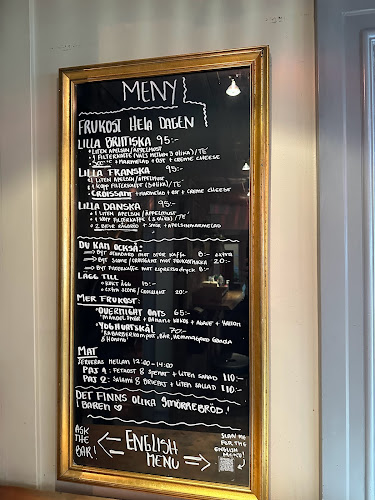 MENY
FRUKOST HELA DAGEN
LILLA BRITTISKA 95:-
• LITEN APELSIN/ÄPPELMOST
• 1 FILTERKAFFE (VÄLJ MELLAN 3 OLIKA)/TE
• SCONE + MARMELAD + OST + CREME CHEESE
LILLA FRANSKA 95:-
• LITEN APELSIN/ÄPPELMOST
• 1 KOPP FILTERKAFFE (3 OLIKA)/TE
• CROISSANT + MARMELAD + OST + CREME CHEESE
LILLA DANSKA
• 1 LITEN APELSIN/ÄPPELMOST
• 1 KOPP FILTERKAFFE (3 OLIKA)/TE
• 2 BITAR RÅGBRÖD + SMÖR + APELSINMARMELAD
DU KAN OCKSÅ:
BYT STANDARD MOT STOR KAFFE 8:- EXTRA
BYT SCONE/CROISSANT MOT 20:-
BYT MOT ESPRESSODRYCK 8:-
LÄGG TILL
• KOKT ÄGG 15:-
• EXTRA SCONE/CROISSANT 20:-
MER FRUKOST:
• OVERNIGHT OATS 65:-
MANDEL + BANAN + KOKOS + AGAVE + HALLON
• YOGHURTSKÅL 70:-
RABARBERKOMPOTT, BÄR, HEMMAGJORD GRANOLA
& HONUNG
MAT
SERVERAS MELLAN 12:00-14:00
PAJ 1: FETAOST & SPENAT + LITEN SALLAD 110:-
PAJ 2: SALAMI & + LITEN SALLAD 110:-
DET FINNS OLIKA SMÖRREBRÖD!
I BAREN ♡
ASK
THE
BAR!
← ENGLISH →
MENU
SCAN ME
FOR THE
ENGLISH
MENU!